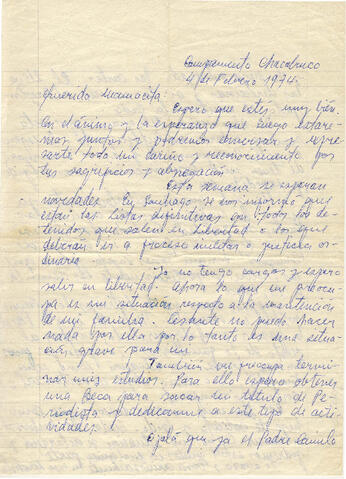 Campamento Chacabuco
4 de Febrero 1974.
Querido Mamacita:
Espero que estés muy bien
en el ánimo y la esperanza que luego estare-
mos juntos y podremos conversar y expre-
sarte todo mi cariño y reconocimiento por
tus sacrificios y abnegación.
Esta semana se esperan
novedades. En Santiago se nos informó que
están las listas definitivas de todos los de-
tenidos que salen en libertad o los que
deberán ir a proceso militar o justicia or-
dinaria.
Yo no tengo cargos y espero
salir en libertad. Ahora lo que me preocu-
pa es mi situación respecto a la mantención
de mi familia. Cesante no puedo hacer
nada por ella por lo tanto es una situa-
ción grave para mí.
También me preocupa termi-
nar mis estudios. Para ello espero obtener
una Beca para sacar mi título de Pe-
riodista y dedicarme a este tipo de acti-
vidades.
Ojalá que ya el Padre Camilo